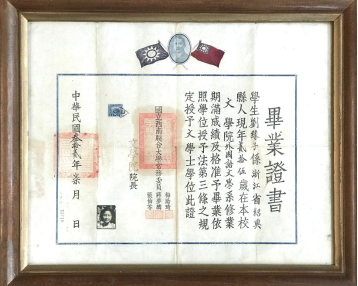 畢業證書
學生劉緣子係浙江省紹興
縣人現年貳拾伍歲在本校
文學院外國語文學系修業
期滿成績及格准予畢業依
照學位授予法第三條之規
定授予文學士學位此證
國立西南聯合大學常務委員
梅貽琦
蔣夢麟
張伯苓
院長
中華民國叁拾貳年柒月 日